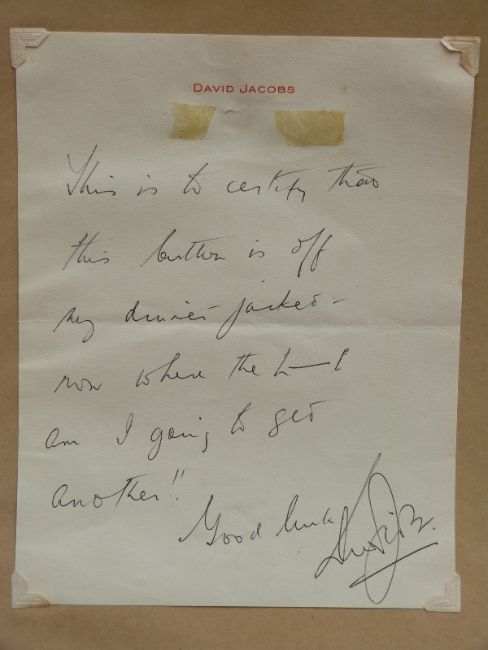 DAVID JACOBS
This is to certify that
this button is off
my dinner jacket -
now where the H—l
am I going to get
another!!
Good luck